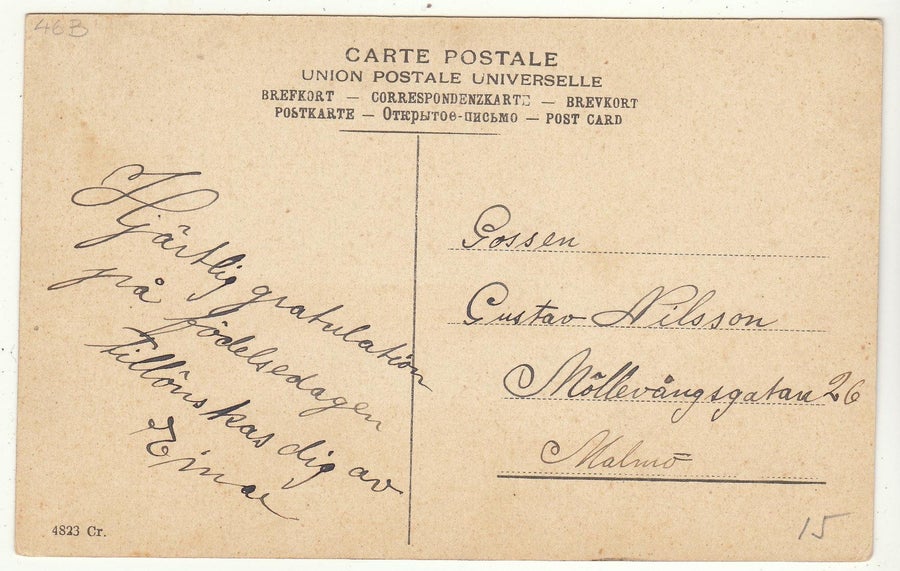 46B
CARTE POSTALE
UNION POSTALE UNIVERSELLE
BREFKORT — CORRESPONDENZKARTE — BREVKORT
POSTKARTE — Открытое-письмо — POST CARD
Hjärtlig gratulation
på födelsedagen
tillönskas dig av
Einar
Gossen
Gustav Nilsson
Möllevångsgatan 26
Malmö
4823 Cr.
15